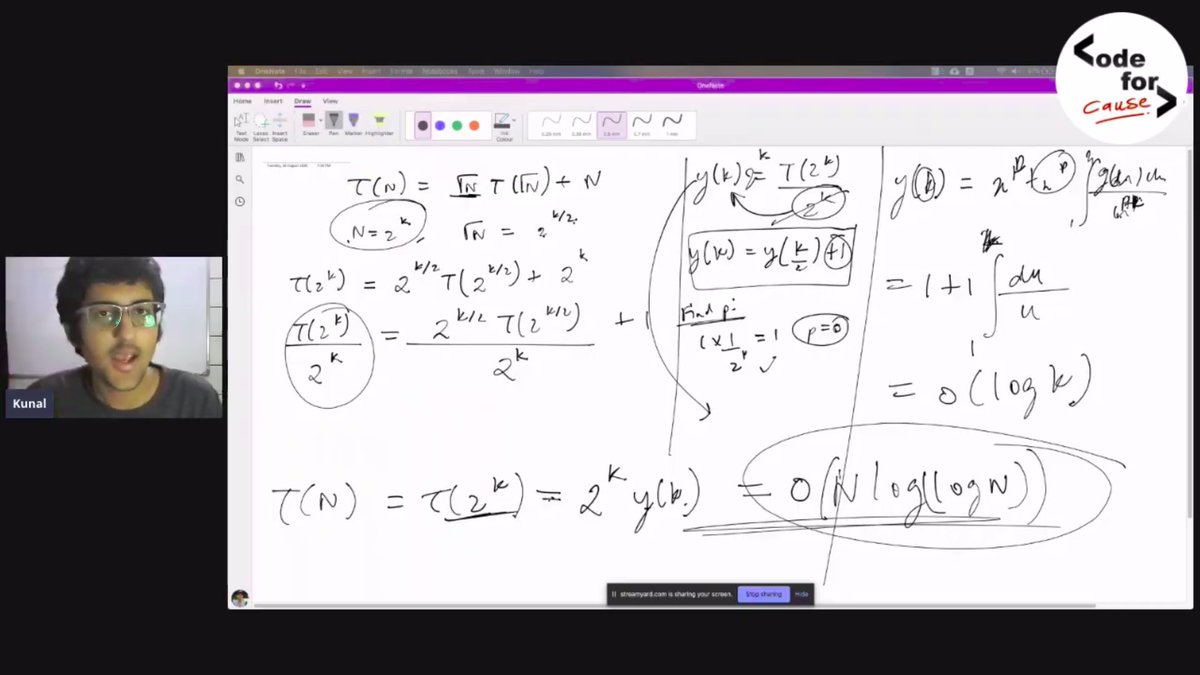 <ode
for
cause>
OneNote File Edit View Insert Format Notebooks Tools Window Help
OneNote
Home Insert Draw View
Text Mode Lasso Select Insert Space Eraser Pen Marker Highlighter 0.25 mm 0.35 mm 0.5 mm 0.7 mm 1 mm Ink Colour
T(N) = √N T(√N) + N
N = 2^k √N = 2^{k/2}
T(2^k) = 2^{k/2} T(2^{k/2}) + 2^k
T(2^k) / 2^k = 2^{k/2} T(2^{k/2}) / 2^k + 1
y(k) = T(2^k) / 2^k
y(k) = y(k/2) + 1
Find p:
1 × 1/2^p = 1 ✓ p=0
y(k) = x^p + x^p ∫ g(u) du
= 1 + 1 ∫ du / u
1
= O(log k)
T(N) = T(2^k) = 2^k y(k) = O(N log(log N))
Kunal
streamyard.com is sharing your screen. Stop sharing Hide